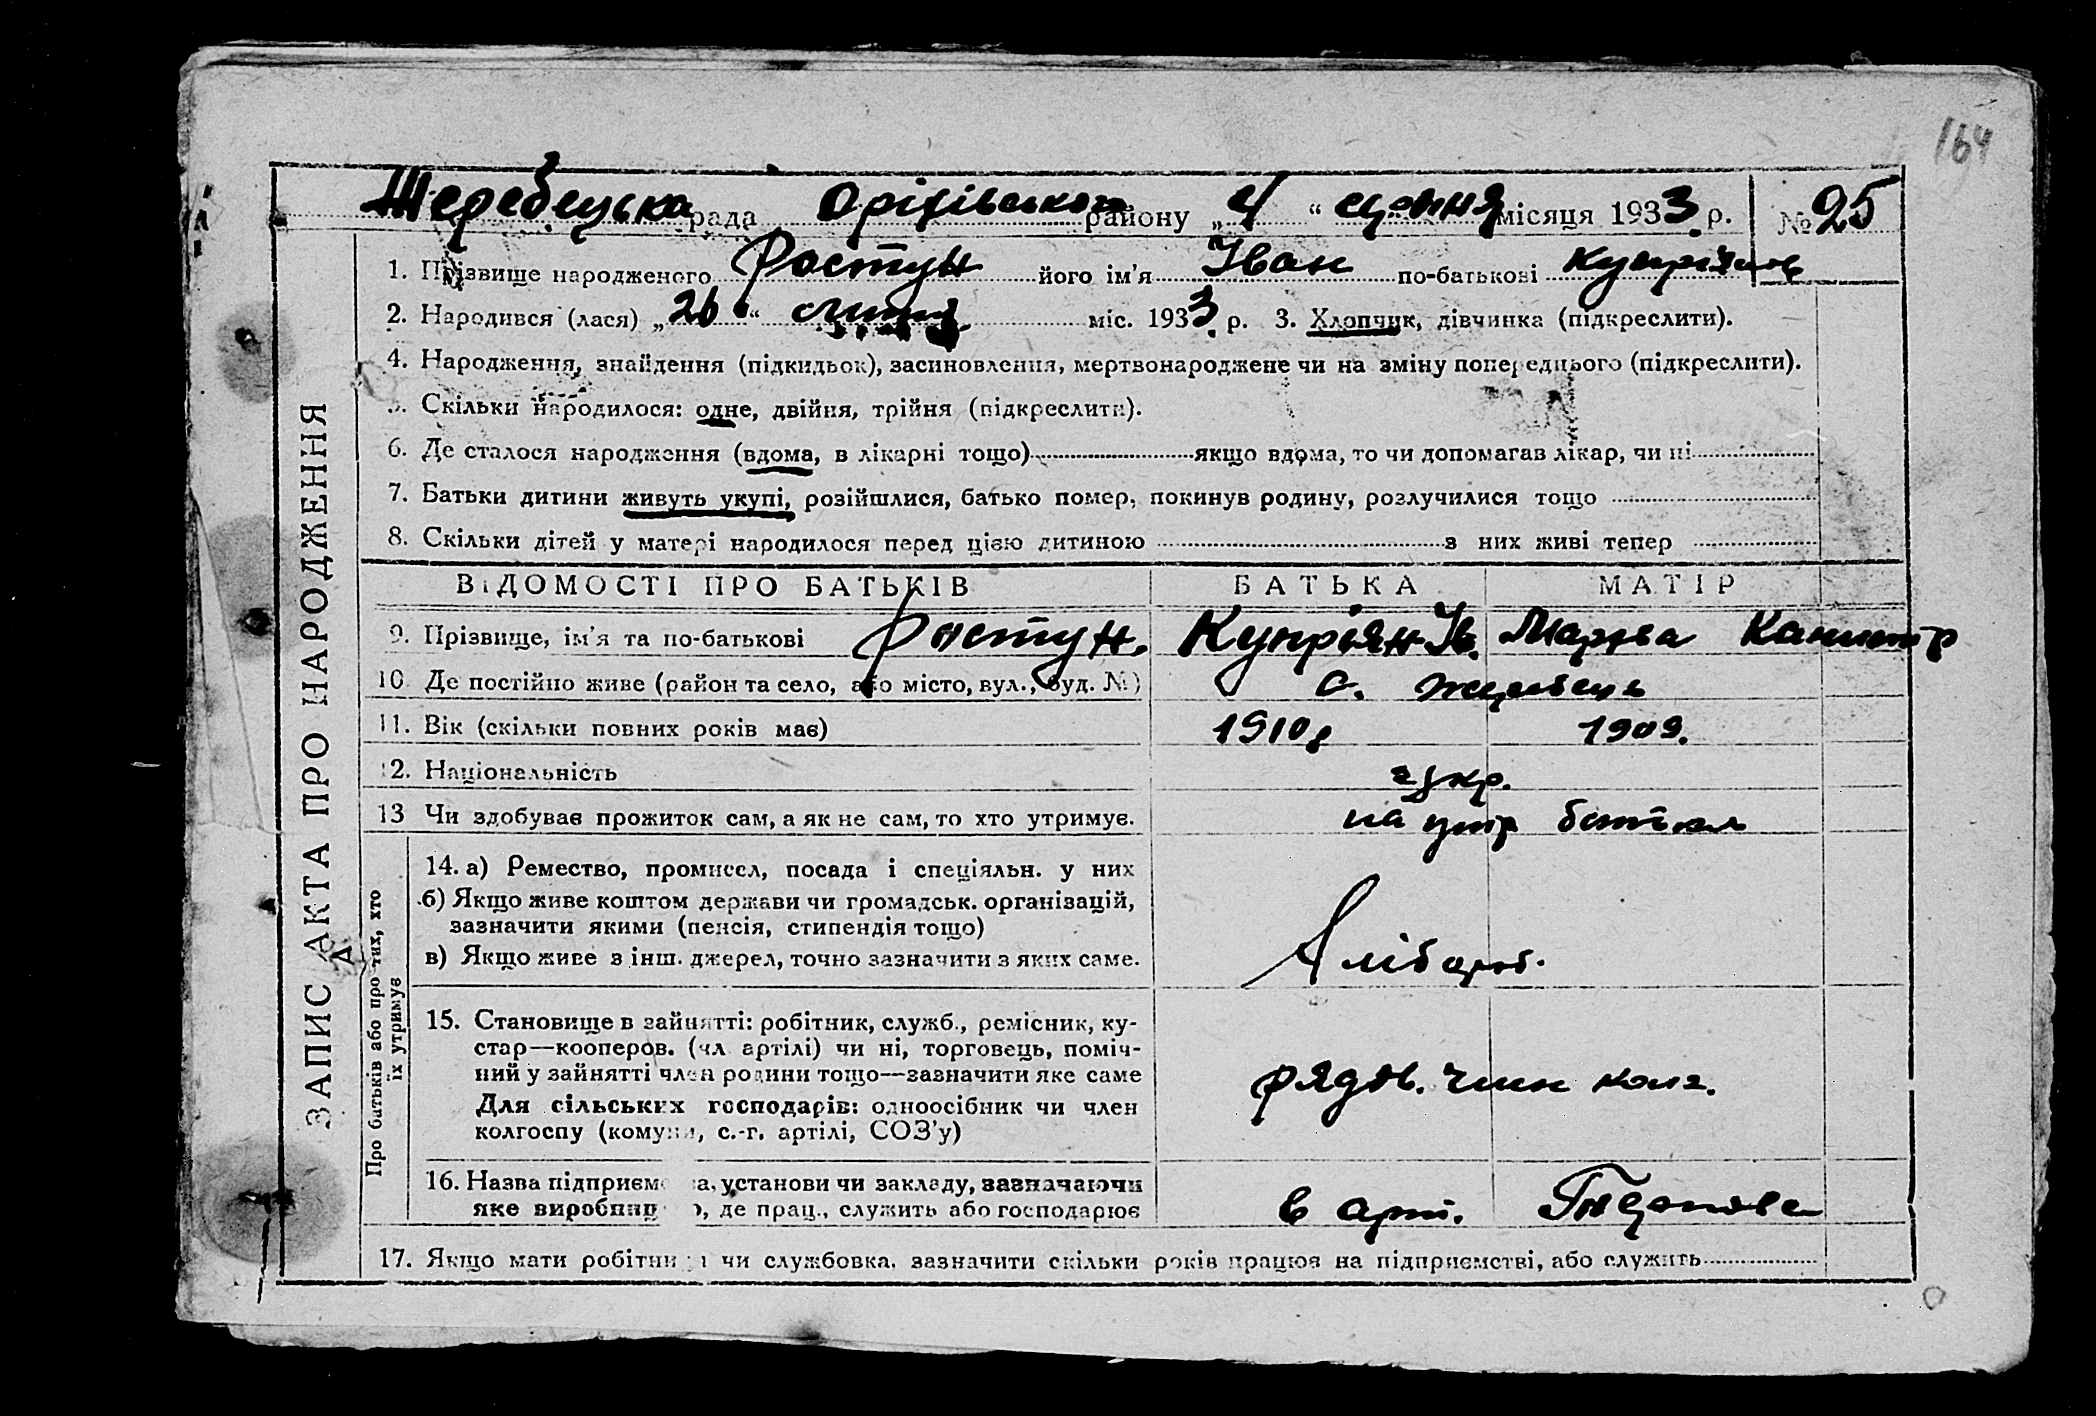 164
Жеребецька рада Оріхівського району „4“ серпня місяця 1933 р. № 25
1. Прізвище народженого Ростун його ім'я Іван по-батькові
2. Народився (лася) „26“ міс. 1933 р. 3. Хлопчик, дівчинка (підкреслити).
4. Народження, знайдення (підкидьок), засиновлення, мертвонароджене чи на зміну попереднього (підкреслити).
5. Скільки народилося: одне, двійня, трійня (підкреслити).
6. Де сталося народження (вдома, в лікарні тощо) якщо вдома, то чи допомагав лікар, чи ні
7. Батьки дитини живуть укупі, розійшлися, батько помер, покинув родину, розлучилися тощо
8. Скільки дітей у матері народилося перед цією дитиною з них живі тепер
ВІДОМОСТІ ПРО БАТЬКІВ БАТЬКА МАТІР
9. Прізвище, ім'я та по-батькові Ростун. Купріян Ів. Марфа
10. Де постійно живе (район та село, або місто, вул., буд. №) с. Жеребець
11. Вік (скільки повних років має) 1910 р 1909.
12. Національність укр.
13 Чи здобуває прожиток сам, а як не сам, то хто утримує. на утр батька
14. а) Ремество, промисел, посада і спеціяльн. у них
б) Якщо живе коштом держави чи громадськ. організацій,
зазначити якими (пенсія, стипендія тощо)
в) Якщо живе з інш. джерел, точно зазначити з яких саме. Хлібороб.
15. Становище в зайнятті: робітник, служб., ремісник, ку-
стар—кооперов. (чл артілі) чи ні, торговець, поміч-
ний у зайнятті член родини тощо—зазначити яке саме
Для сільських господарів: одноосібник чи член
колгоспу (комуни, с.-г. артілі, СОЗ'у)
рядов. член колг.
16. Назва підприємства, установи чи закладу, зазначаючи
яке виробництво, де прац., служить або господарює в арт.
17. Якщо мати робітниця чи службовка, зазначити скільки років працює на підприємстві, або служить
ЗАПИС АКТА ПРО НАРОДЖЕННЯ
Про батьків або про тих, хто
їх утримує